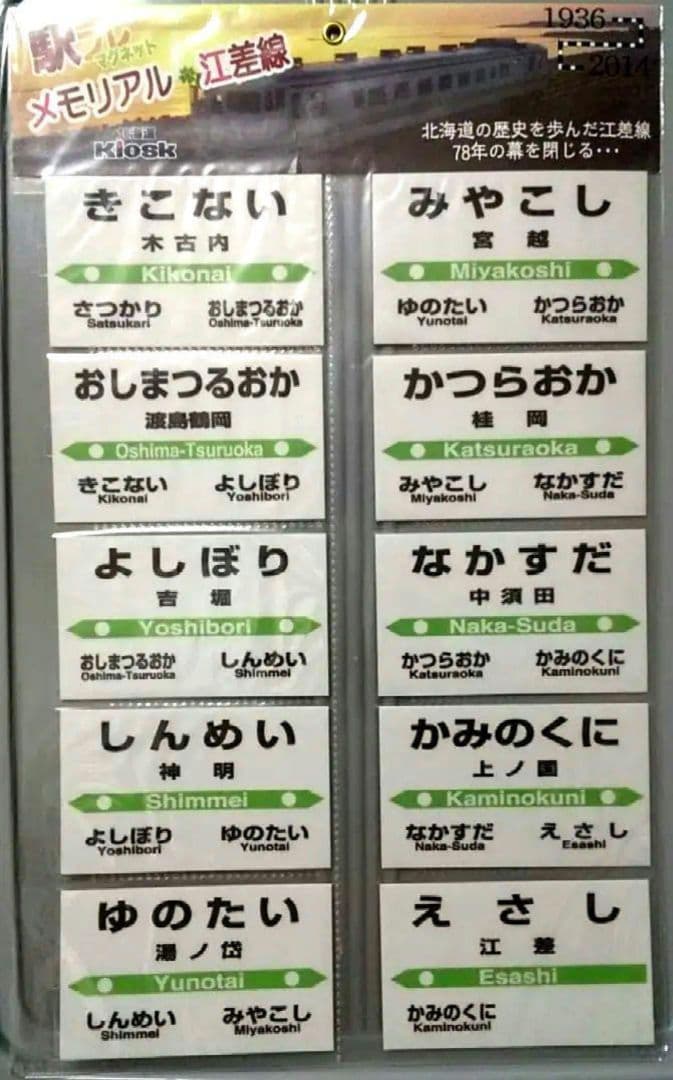 マグネット
メモリアル 江差線
Kiosk
1936
2014
北海道の歴史を歩んだ江差線
78年の幕を閉じる・・・
きこない
木古内
Kikonai
さつかり おしまつるおか
Satsukari Oshima-Tsuruoka
おしまつるおか
渡島鶴岡
Oshima-Tsuruoka
きこない よしぼり
Kikonai Yoshibori
よしぼり
吉堀
Yoshibori
おしまつるおか しんめい
Oshima-Tsuruoka Shimmei
しんめい
神明
Shimmei
よしぼり ゆのたい
Yoshibori Yunotai
ゆのたい
湯ノ岱
Yunotai
しんめい みやこし
Shimmei Miyakoshi
みやこし
宮越
Miyakoshi
ゆのたい かつらおか
Yunotai Katsuraoka
かつらおか
桂岡
Katsuraoka
みやこし なかすだ
Miyakoshi Naka-Suda
なかすだ
中須田
Naka-Suda
かつらおか かみのくに
Katsuraoka Kaminokuni
かみのくに
上ノ国
Kaminokuni
なかすだ えさし
Naka-Suda Esashi
えさし
江差
Esashi
かみのくに
Kaminokuni